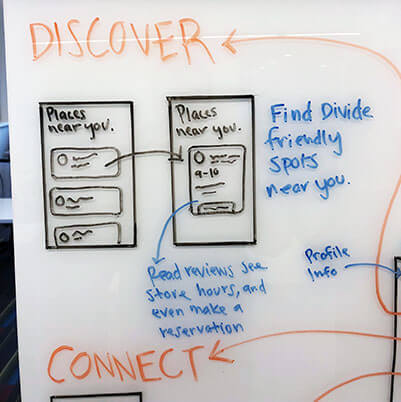 DISCOVER
Places
near you.
Places
near you.
9-10
Find Divide
friendly
spots
near you.
Read reviews see
store hours, and
even make a
reservation
Profile
Info
CONNECT